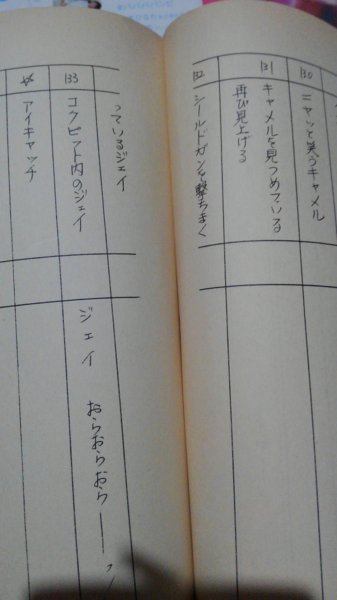 130
ニヤッと笑うキャメル
131
キャメルを見つめている
再び見上げる
132
シールドガンを撃ちまく
っているジェイ
133
コクピット内のジェイ
ジェイ おらおらおらーーッ
アイキャッチ